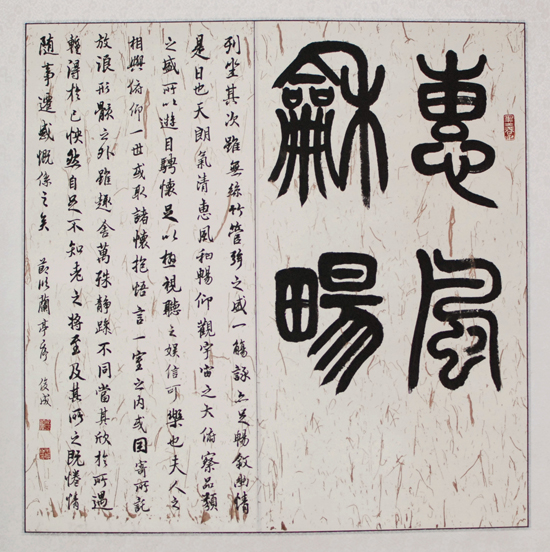 惠風
龢畼
列坐其次雖無絲竹管弦之盛一觴詠亦足暢敘幽情
是日也天朗氣清惠風和暢仰觀宇宙之大俯察品類
之盛所以遊目騁懷足以極視聽之娛信可樂也夫人之
相與俯仰一世或取諸懷抱悟言一室之內或因寄所託
放浪形骸之外雖趣舍萬殊靜躁不同當其欣於所遇
得於己怏然自足不知老之將至及其所之既惓情
隨事遷感慨係之矣 節臨蘭亭序 俊成